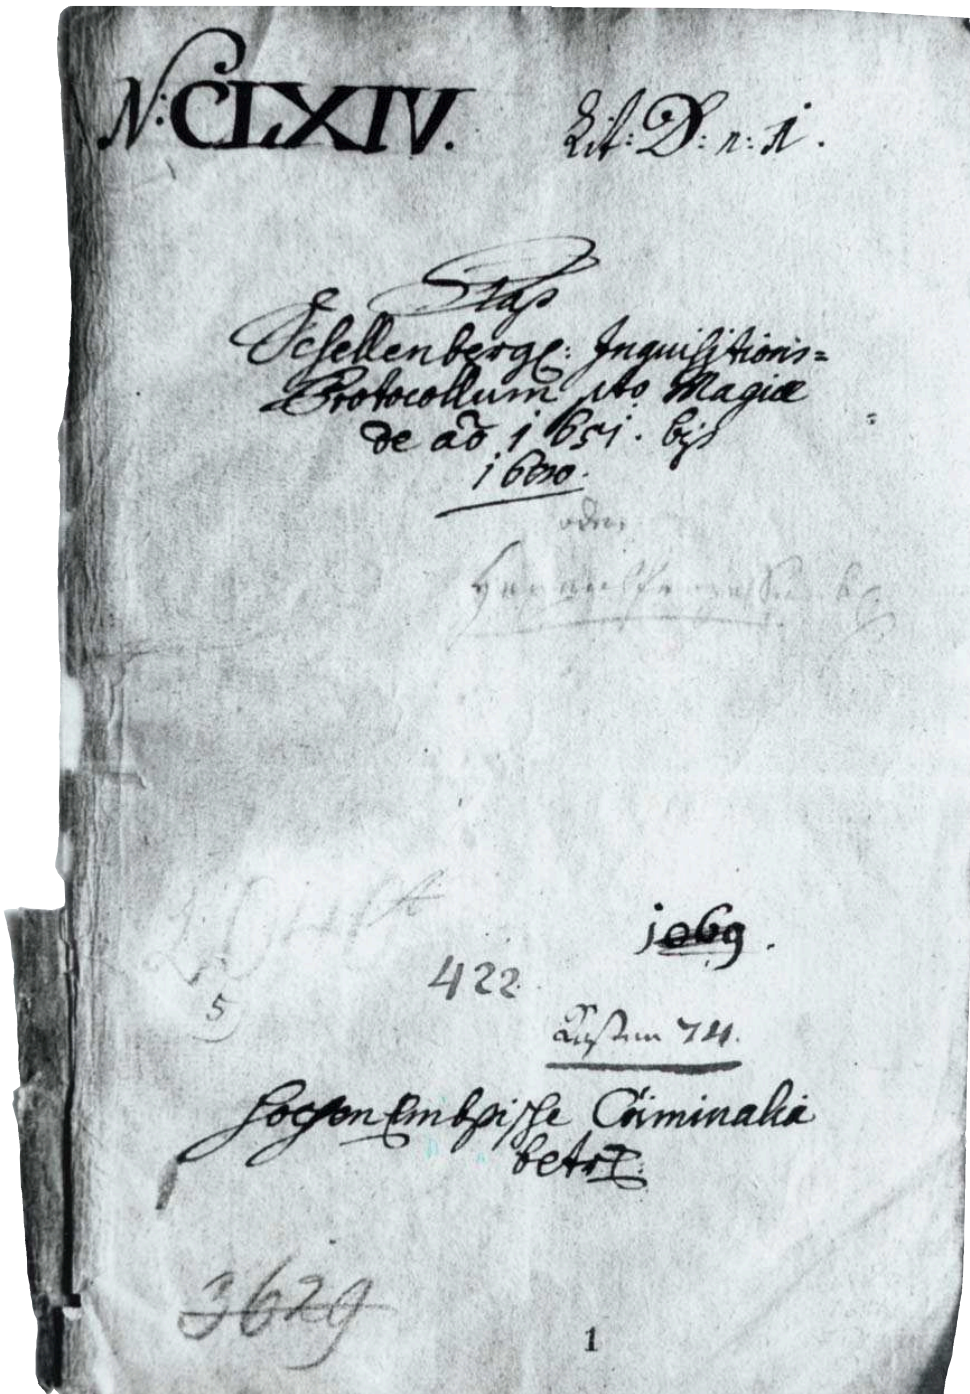 N: CLXIV. Lit: D: n: 1.
Schellenbergl: Inquisitions=
Protocollum pto Magiæ
de aō 1651. biß
1660.
oder
1069.
422
5
Kasten 74.
HochenEmbsische Criminalia
betr:
3629
1